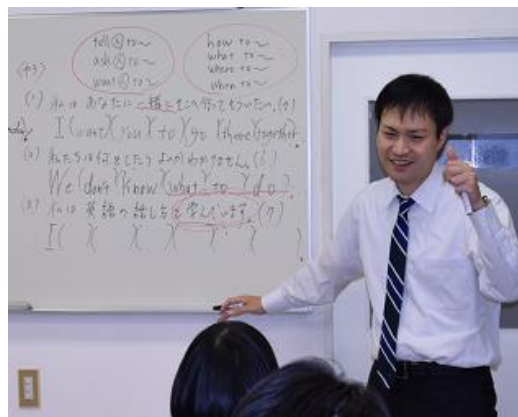 tell Ⓐ to〜
ask Ⓐ to〜
want Ⓐ to〜
how to〜
what to〜
where to〜
when to〜
〈中3〉
(1) 私は あなたに 一緒にそこへ行ってもらいたい。(7)
I (want)(you)(to)(go)(there)(together).
(2) 私たちは何をしたらよいかわかりません。(6)
We (don't)(know)(what)(to)(do).
(3) 私は 英語の話し方を学んでいます。(7)
I( )( )( )( )( )( ).